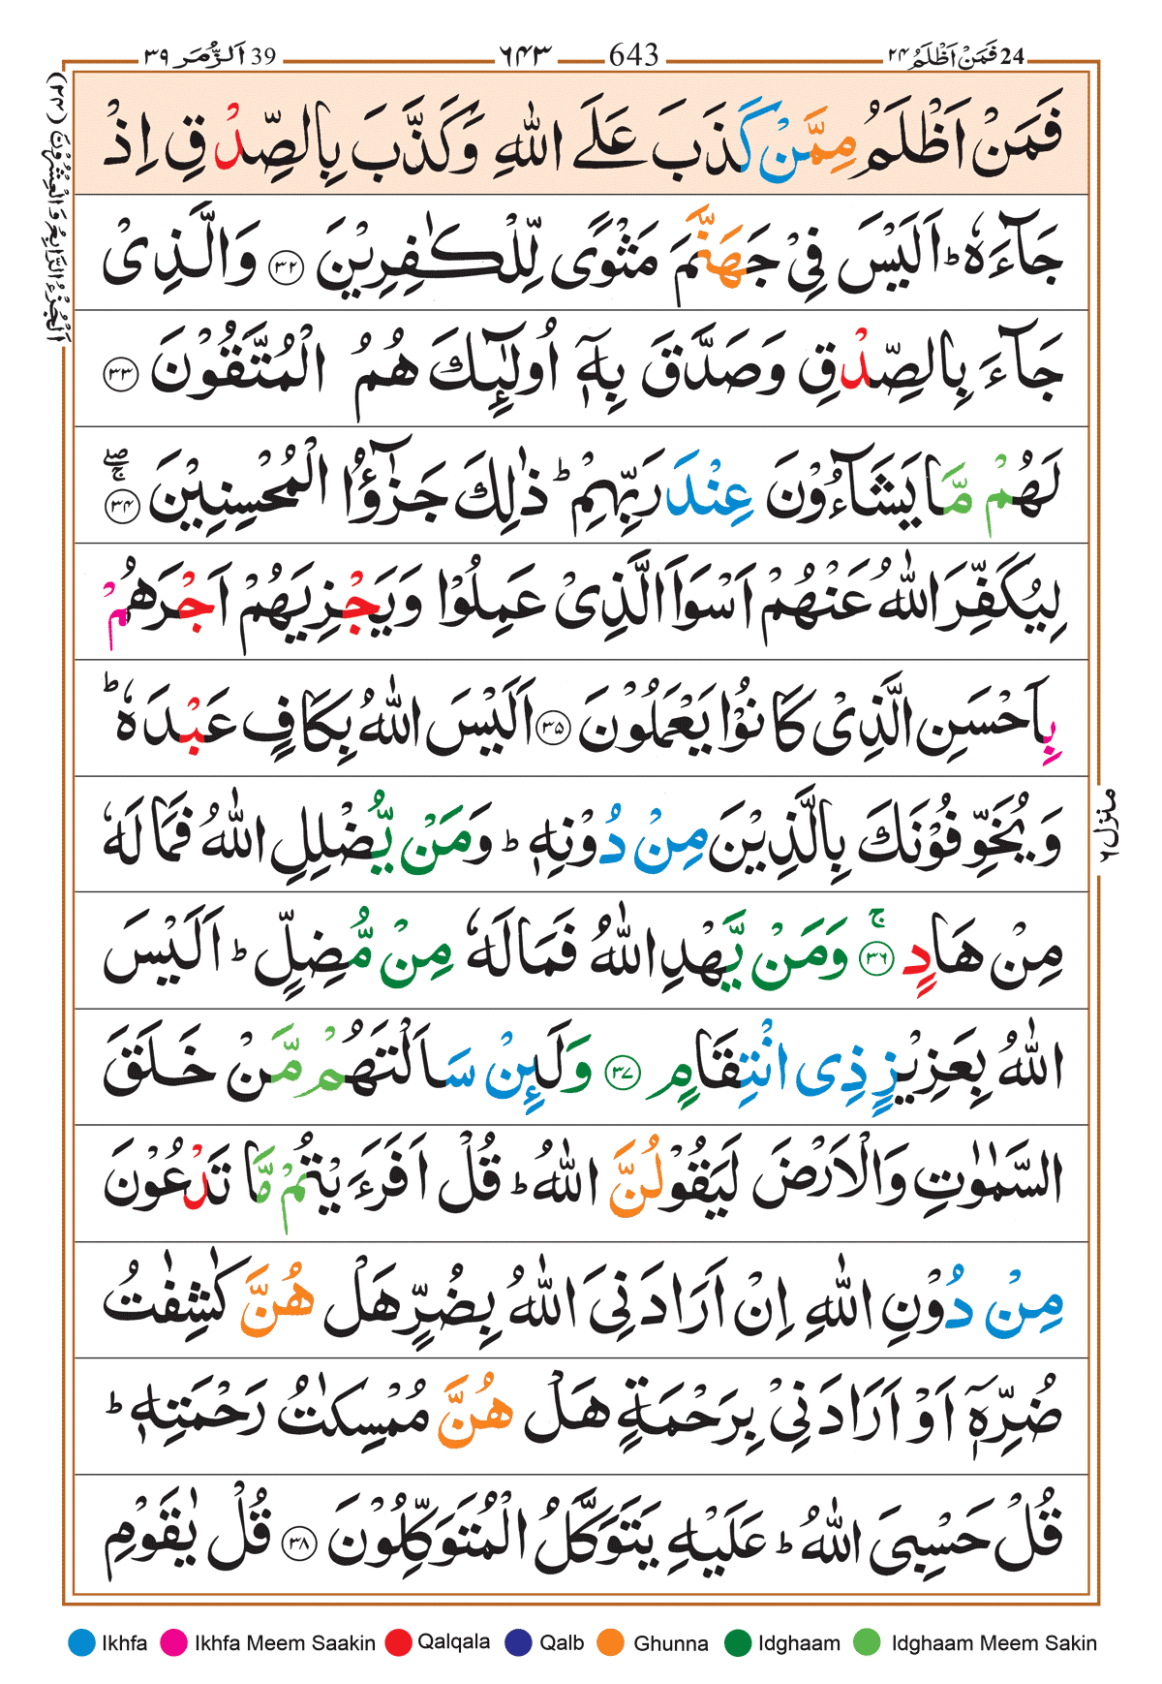 39 اَلزُّمَر ٣٩
٦٤٣ — 643
24 فَمَنْ اَظْلَمُ ٢٤
اَلْجُزْءُ الرَّابِعُ وَالْعِشْرُوْنَ (٢٤)
فَمَنْ اَظْلَمُ مِمَّنْ كَذَبَ عَلَى اللّٰهِ وَكَذَّبَ بِالصِّدْقِ اِذْ
جَآءَهٗ ؕ اَلَيْسَ فِيْ جَهَنَّمَ مَثْوًى لِّلْكٰفِرِيْنَ ٣٢ وَالَّذِيْ
جَآءَ بِالصِّدْقِ وَصَدَّقَ بِهٖٓ اُولٰٓئِكَ هُمُ الْمُتَّقُوْنَ ٣٣
لَهُمْ مَّا يَشَآءُوْنَ عِنْدَ رَبِّهِمْ ؕ ذٰلِكَ جَزٰٓؤُا الْمُحْسِنِيْنَ ۖۚ ٣٤
لِيُكَفِّرَ اللّٰهُ عَنْهُمْ اَسْوَاَ الَّذِيْ عَمِلُوْا وَيَجْزِيَهُمْ اَجْرَهُمْ
بِاَحْسَنِ الَّذِيْ كَانُوْا يَعْمَلُوْنَ ٣٥ اَلَيْسَ اللّٰهُ بِكَافٍ عَبْدَهٗ ؕ
وَيُخَوِّفُوْنَكَ بِالَّذِيْنَ مِنْ دُوْنِهٖ ؕ وَمَنْ يُّضْلِلِ اللّٰهُ فَمَا لَهٗ
مِنْ هَادٍ ۚ ٣٦ وَمَنْ يَّهْدِ اللّٰهُ فَمَا لَهٗ مِنْ مُّضِلٍّ ؕ اَلَيْسَ
اللّٰهُ بِعَزِيْزٍ ذِى انْتِقَامٍ ٣٧ وَلَئِنْ سَاَلْتَهُمْ مَّنْ خَلَقَ
السَّمٰوٰتِ وَالْاَرْضَ لَيَقُوْلُنَّ اللّٰهُ ؕ قُلْ اَفَرَءَيْتُمْ مَّا تَدْعُوْنَ
مِنْ دُوْنِ اللّٰهِ اِنْ اَرَادَنِيَ اللّٰهُ بِضُرٍّ هَلْ هُنَّ كٰشِفٰتُ
ضُرِّهٖٓ اَوْ اَرَادَنِيْ بِرَحْمَةٍ هَلْ هُنَّ مُمْسِكٰتُ رَحْمَتِهٖ ؕ
قُلْ حَسْبِيَ اللّٰهُ ؕ عَلَيْهِ يَتَوَكَّلُ الْمُتَوَكِّلُوْنَ ٣٨ قُلْ يٰقَوْمِ
منزل ٦
Ikhfa Ikhfa Meem Saakin Qalqala Qalb Ghunna Idghaam Idghaam Meem Sakin